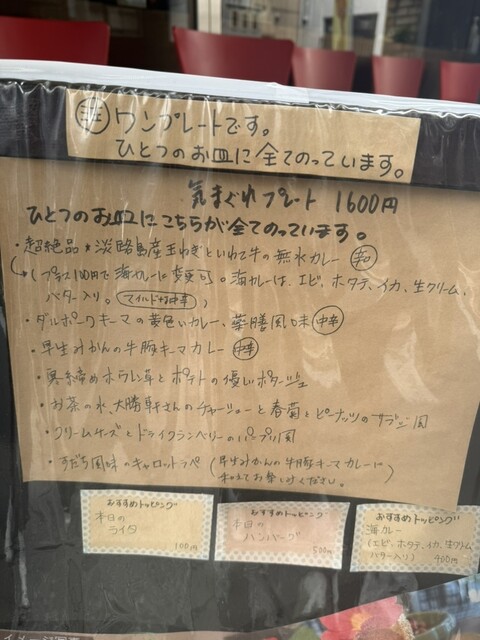 ワンプレートです。
ひとつのお皿に全てのっています。
気まぐれプレート 1600円
ひとつのお皿にこちらが全てのっています。
・超絶品★淡路島産玉ねぎといわて牛の無水カレー 辛口
(プラス100円で海カレーに変更可。海カレーは、エビ、ホタテ、イカ、生クリーム、
バター入り。マイルド中辛)
・ダルポークキーマの黄色いカレー、薬膳風味 中辛
・早生みかんの牛豚キーマカレー 中辛
・寒締めホウレン草とポテトの優しいポタージュ
・お茶の水、大勝軒さんのチャーシューと春菊とピーナッツのサブジ風
・クリームチーズとドライクランベリーの
・すだち風味のキャロットラペ (早生みかんの牛豚キーマカレーに
お楽しみください。)
おすすめトッピング
本日の
ライタ
100円
おすすめトッピング
本日の
ハンバーグ
500円
おすすめトッピング
海カレー
(エビ、ホタテ、イカ、生クリーム
バター入り) 400円
イメージ写真